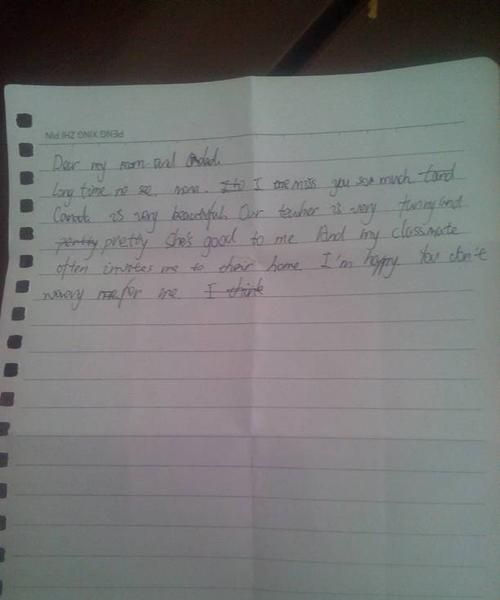 PENG XING ZHI PIN
Dear my mom and dad.
Long time no se mom. I miss you so much and
Canada is very beautiful. Our teacher is very funny and
pretty pretty She's good to me And my classmate
often invites me to their home I'm happy You don't
worry me for me I think